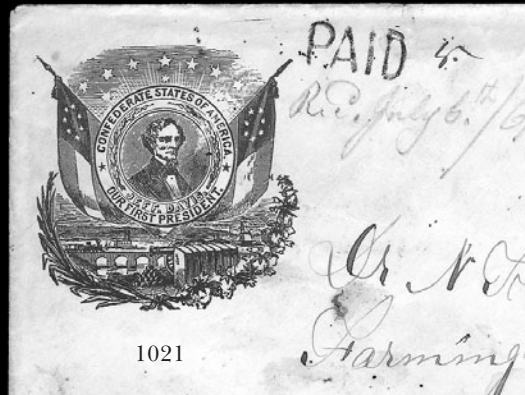 PAID 5
Rec. July 6th /6
CONFEDERATE STATES OF AMERICA.
JEFF. DAVIS.
OUR FIRST PRESIDENT.
Dr N F
Farming
1021